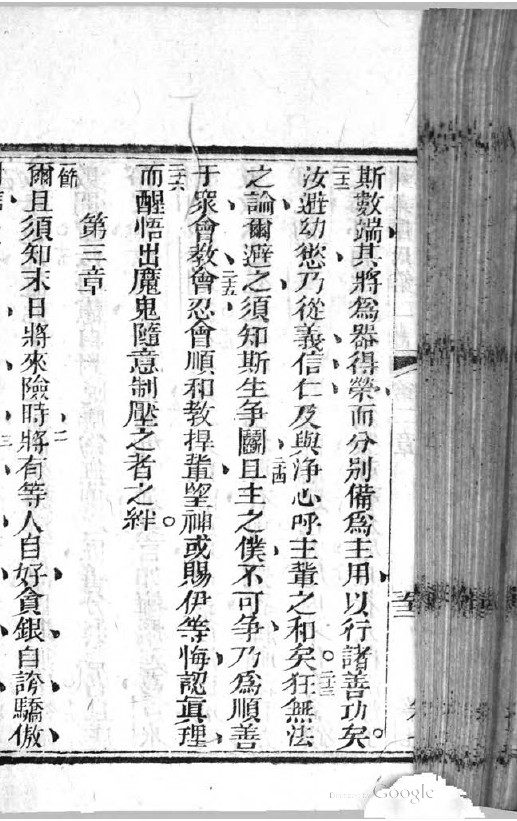 斯數端其將爲器得榮而分别備爲主用以行諸善功矣。
二十二汝避幼慾乃從義信仁及與浄心呼主輩之和矣。二十三狂無法
之論爾避之須知斯生爭鬭二十四且主之僕不可爭乃爲順善
于衆會教會忍二十五會順和教捍輩望神或賜伊等悔認眞理
二十六而醒悟出魔鬼隨意制壓之者之絆。
第三章
一節爾且須知末日將來險時二將有等人自好貪銀自誇驕傲
Google